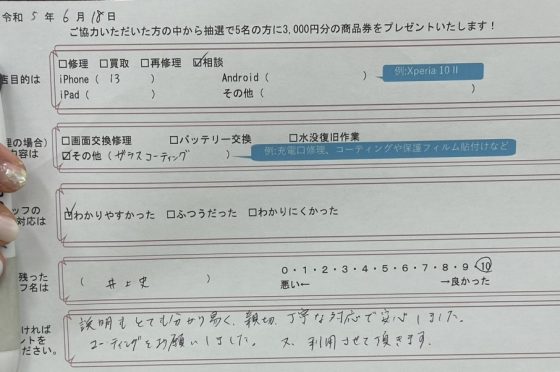 令和 5 年 6 月 18 日
ご協力いただいた方の中から抽選で5名の方に3,000円分の商品券をプレゼントいたします！
店目的は
□修理 □買取 □再修理 ☑相談
iPhone（ 13 ） Android（ ） 例:Xperia 10 II
iPad（ ） その他（ ）
理の場合）
内容は
□画面交換修理 □バッテリー交換 □水没復旧作業
☑その他（ガラスコーティング） 例:充電口修理、コーティングや保護フィルム貼付けなど
ッフの
対応は
☑わかりやすかった □ふつうだった □わかりにくかった
残った
フ名は
（ 井上史 ）
0・1・2・3・4・5・6・7・8・9・10
悪い← →良かった
ければ
ントを
ださい。
説明もとても分かり易く、親切、丁寧な対応で安心しました。
コーティングをお願いしました。又、利用させて頂きます。